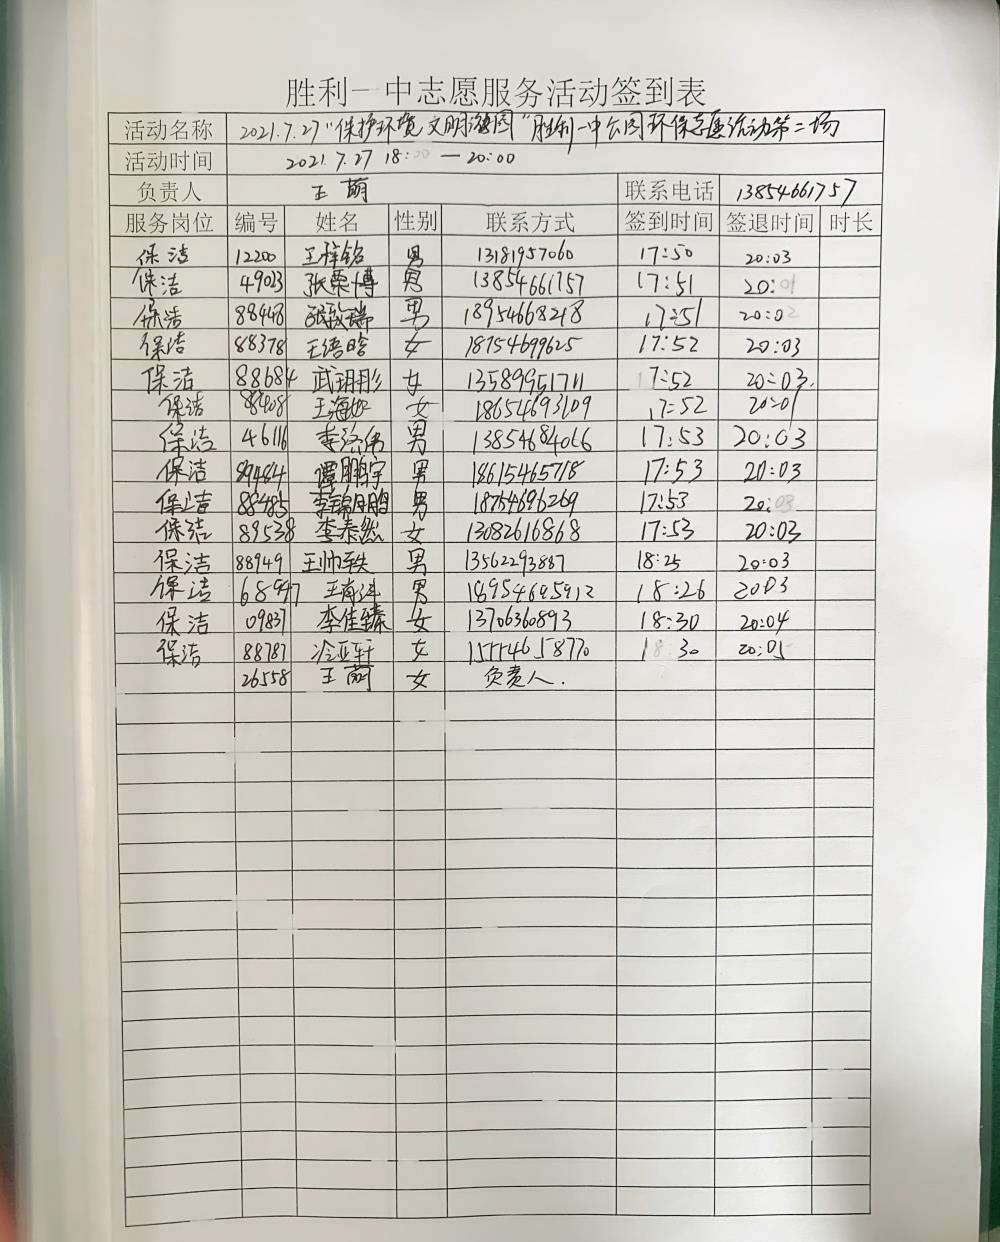 胜利一中志愿服务活动签到表
活动名称 2021.7.27"保护环境 文明游园"胜利一中公园环保志愿活动第二场
活动时间 2021.7.27 18: — 20:00
负责人 王萌 联系电话 13854661757
服务岗位 编号 姓名 性别 联系方式 签到时间 签退时间 时长
保洁 12200 王梓铭 男 13181957060 17:50 20:03
保洁 49023 张栗博 男 13854661757 17:51 20:01
保洁 88448 男 18954668218 17:51 20:02
保洁 88378 王语晗 女 18754699625 17:52 20:03
保洁 88684 武玥彤 女 13589951711 17:52 20:03.
保洁 88408 女 18654693109 17:52 20:01
保洁 46116 男 13854684066 17:53 20:03
保洁 89484 谭鹏宇 男 18615465718 17:53 20:03
保洁 88485 李锦鹏 男 18754696269 17:53 20:03
保洁 89538 李泰然 女 13082616868 17:53 20:03
保洁 88949 王帅轶 男 13562293887 18:25 20:03
保洁 男 18954695912 18:26 20:03
保洁 09837 李佳臻 女 13706360893 18:30 20:04
保洁 88787 冷亚轩 女 15554658770 18:30 20:05
26558 王萌 女 负责人.